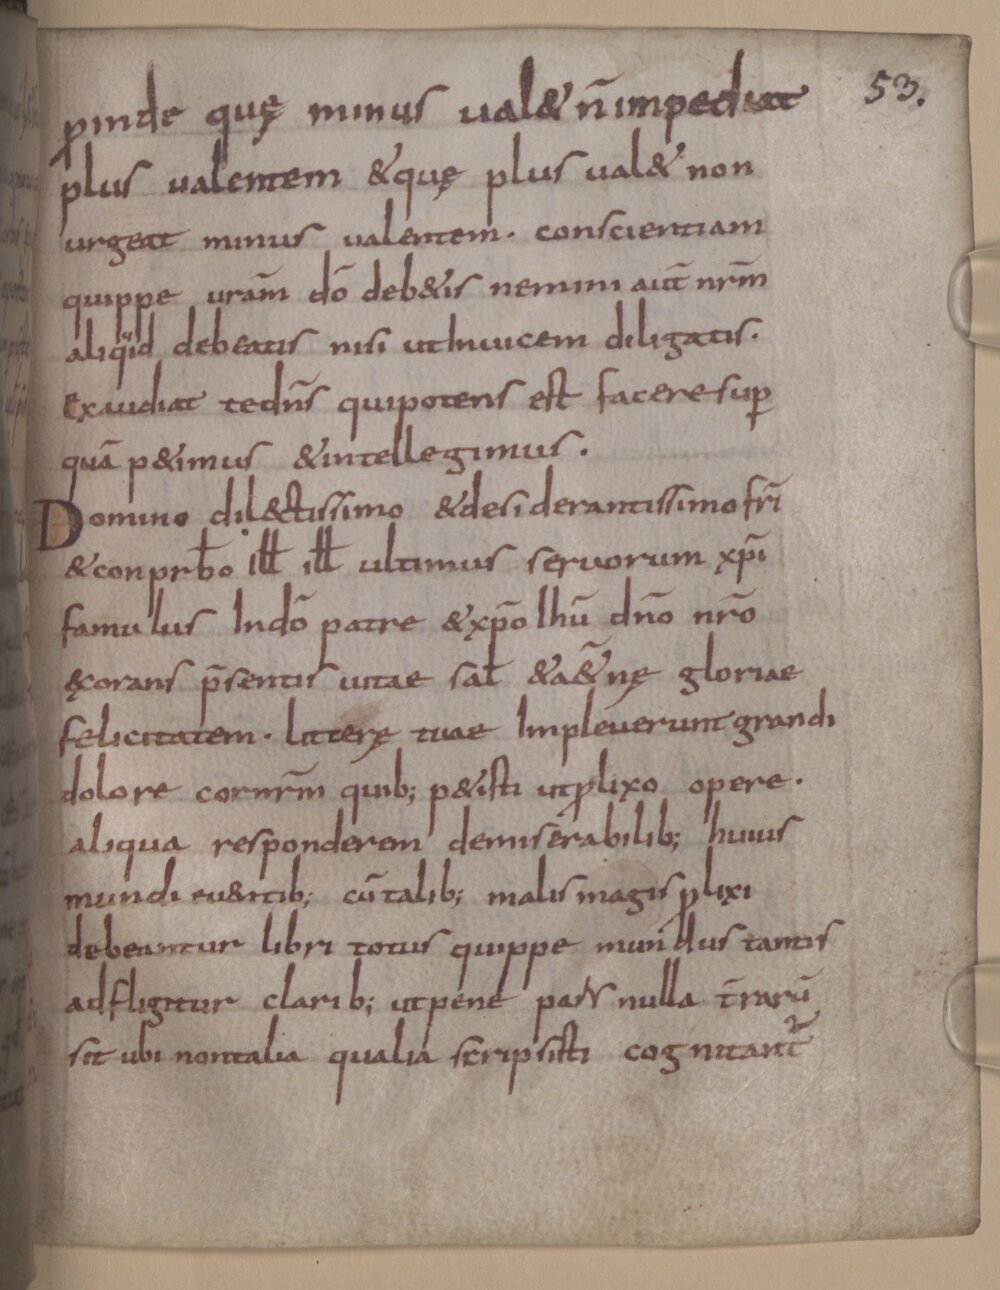 53.
ꝓinde quę minus ual& n̄ impediat
plus ualentem &quę plus ual& non
urgeat minus ualentem. conscientiam
quippe urām dō deb&is nemini aut̄ nrm̄
aliquid debeatis nisi utInuicem diligatis.
exaudiat te dn̄s quipotens est facere sup̲
quā p&imus &intellegimus.
Domino dil&ctissimo &desiderantissimo frī
&conprb̄o iłł iłł ultimus seruorum xpī
famulus Indō patre &xp̄o Ihū dn̄o nrō
&orans p̄sentis uitae sał &a&̄nę gloriae
felicitatem. litterę tuae Impleuerunt grandi
dolore cornrm̄ quib; p&isti utꝓlixo opere.
aliqua responderem demiserabilib; huius
mundi eu&ntib; cū talib; malis magis ꝓlixi
debeantur libri totus quippe mundus tantis
adfligitur cladib; ut pene pars nulla t̄rarū
sit ubi nontalia qualia scripsisti cognitant̃